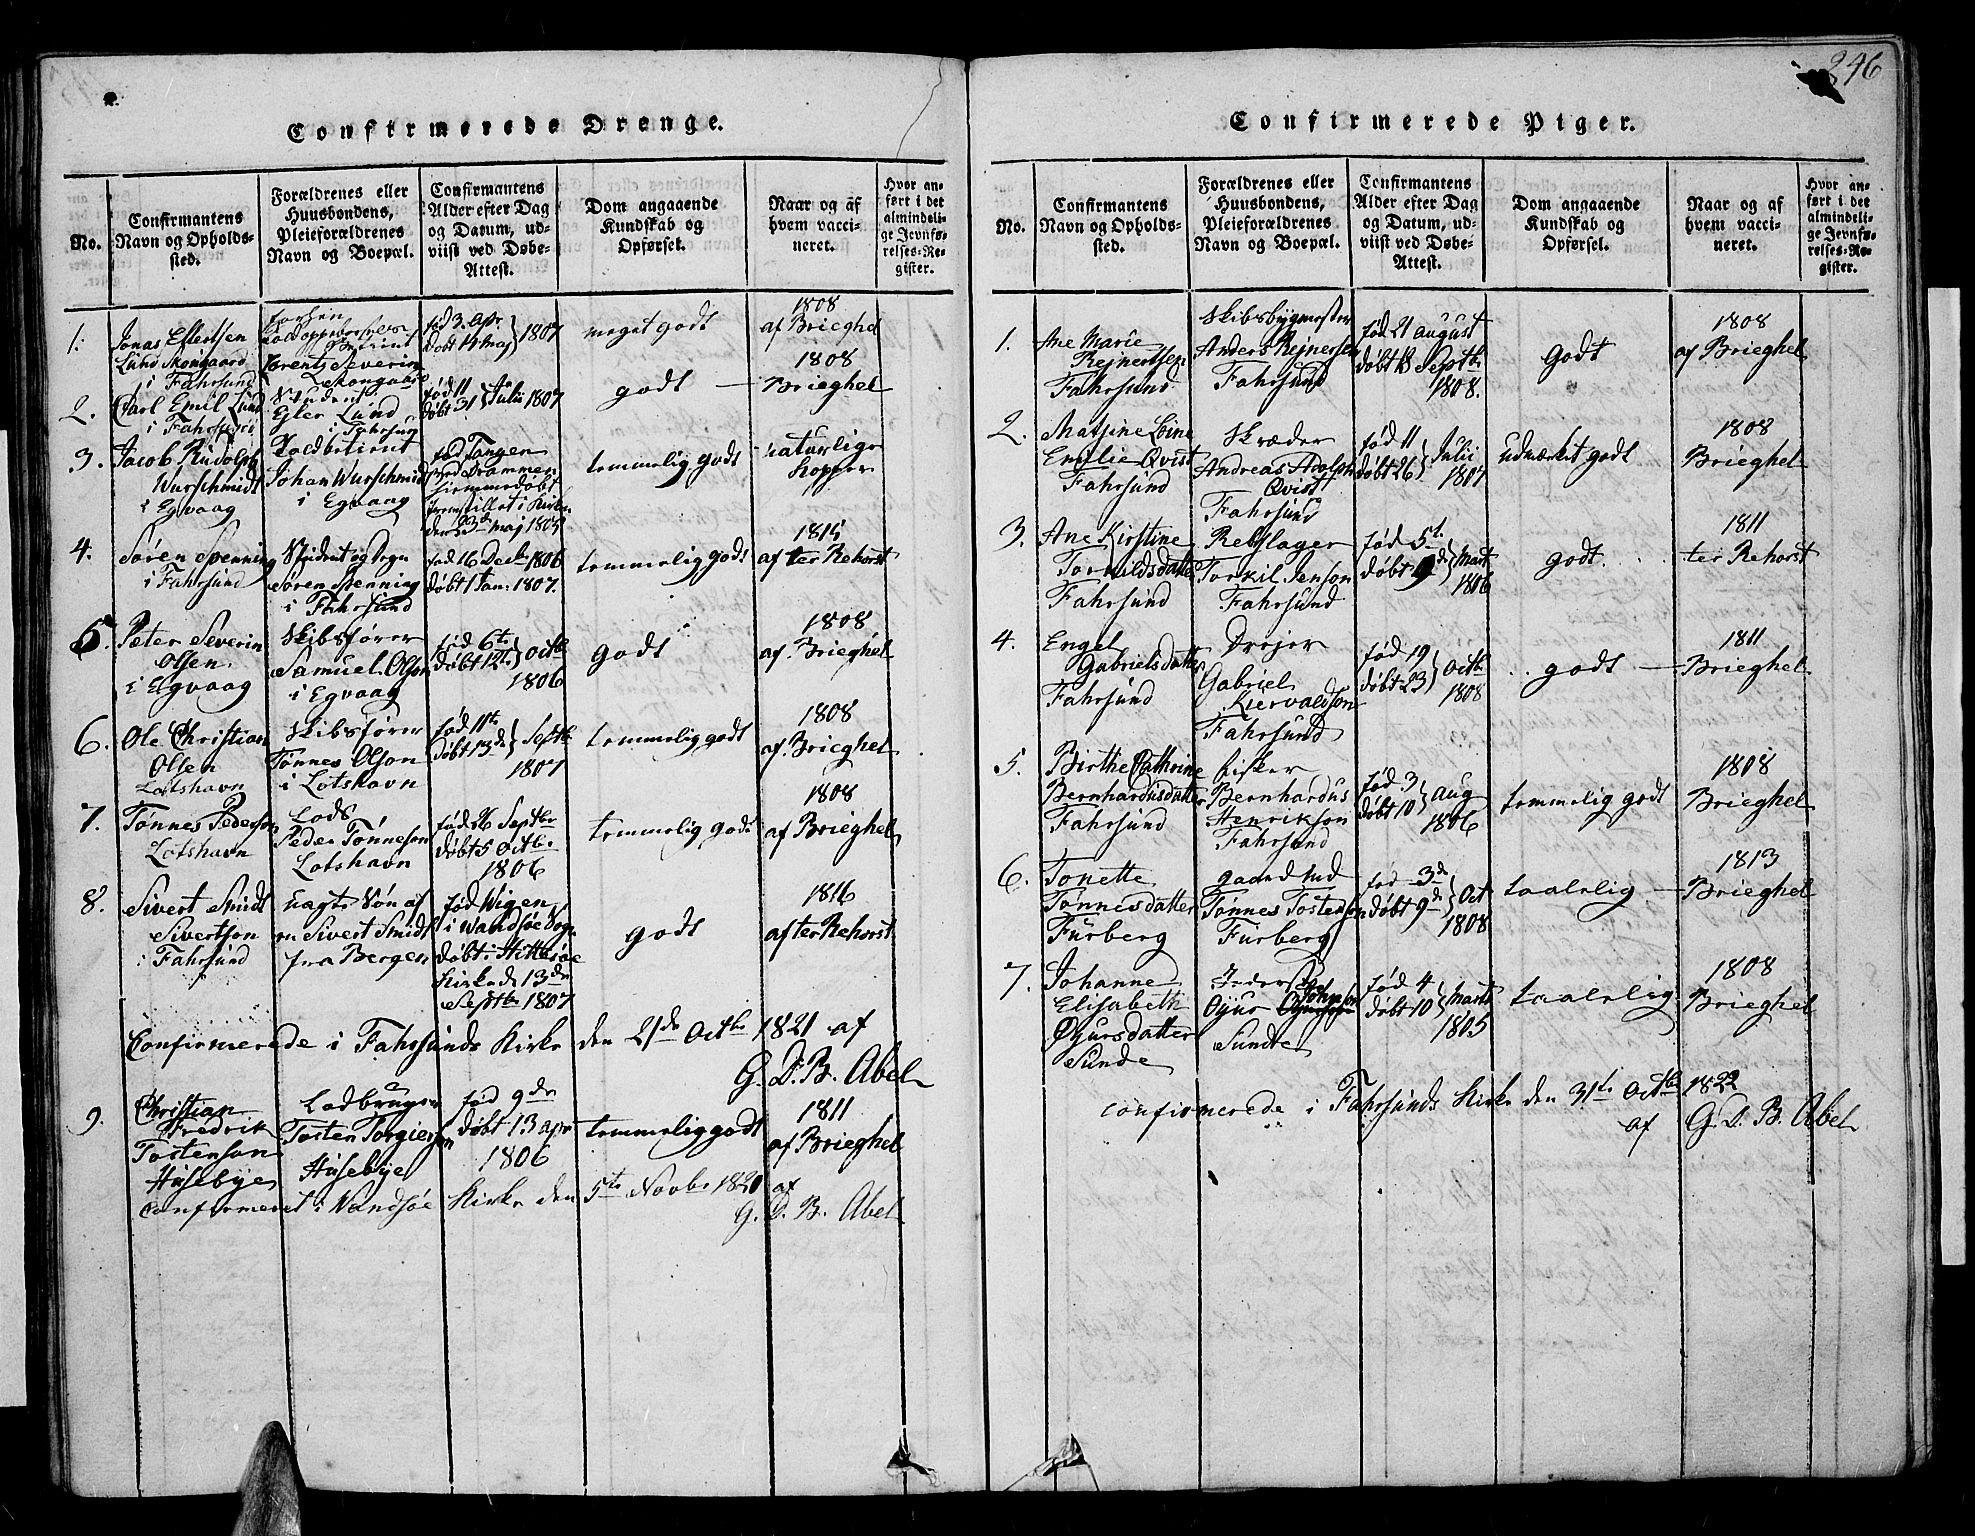 246
Confirmerede Drenge.
No.
Confirmantens
Navn og Opholds-
sted.
Forældrenes eller
Huusbondens,
Pleieforældrenes
Navn og Boepæl.
Confirmantens
Alder efter Dag
og Datum, ud-
viist ved Døbe-
Attest.
Dom angaaende
Kundskab og
Opførsel.
Naar og af
hvem vacci-
neret.
Hvor an-
ført i det
almindeli-
ge Jevnfø-
relses-Re-
gister.
1.
Jonas Ellertsen
Lund Skougaard
i Fahrsund
Lorents Severin
Skougaard
fød 3. Apr.
Døbt 14 Maj } 1807
meget godt
1808
af Brieghel
2.
Carl Emil Lund
i Fahrsund
Student
Ejler Lund
i Fahrsund
fød 11
døbt 31 } Julii 1807
godt
1808
Brieghel
3.
Jacob Rudolph
Wurschmidt
i Egvaag
Toldbetient
Johan Wurschmidt
i Egvaag
fød Tangen
ved Drammen
hjemmedøbt
fremstillet i Kirken
den 23de Maj 1805
temmelig godt
naturlige
Kopper
4.
Søren Spenning
i Fahrsund
Student og Degn
Søren Spenning
i Fahrsund
fød 16 Decbr 1806
døbt 1 Jan: 1807.
temmelig godt
1815
af ter Rehorst
5.
Peter Severin
Olsen
i Egvaag
Skibsfører
Samuel Olson
i Egvaag
fød 6te
Døbt 12te } Octb
1806
godt
1808
af Brieghel
6.
Ole Christian
Olsen
Lotshavn
Skibsfører
Tønnes Olson
i Lotshavn
fød 11te
Døbt 13de } Septb
1807
temmelig godt
1808
af Brieghel
7.
Tønnes Pederson
Lotshavn
Lods
Peder Tønneson
Lotshavn
fød 26 Septbr
Døbt 5 Octb.
1806
temmelig godt
1808
af Brieghel
8.
Sivert Smidt
Sivertson
i Fahrsund
uægte Søn af
en Sivert Smidt
fra Bergen
fød Wigen
i Wandsøe Sogn
døbt i Hittesøe
Kirke d 13de
Septbr 1807
godt
1816
af ter Rehorst
Confirmerede i Fahrsunds Kirke den 21de Octbr 1821 af
G. D. B. Abel
9.
Christian
Fredrik
Tostenson
Huseby e
Ladbruger
Tosten Torgierson
Husebye
fød 9de
døbt 13 apr
1806
temmelig godt
1811
af Brieghel
Confirmeret i Vandsøe Kirke den 5te Novbr 1821 af
G. D. B. Abel
Confirmerede Piger.
No.
Confirmantens
Navn og Opholds-
sted.
Forældrenes eller
Huusbondens,
Pleieforældrenes
Navn og Boepæl.
Confirmantens
Alder efter Dag
og Datum, ud-
viist ved Døbe-
Attest.
Dom angaaende
Kundskab og
Opførsel.
Naar og af
hvem vacci-
neret.
Hvor an-
ført i det
almindeli-
ge Jevnfø-
relses-Re-
gister.
1.
Ane Marie
Rejnertsen
Fahrsund
Skibsbygmester
Anders Rejnersen
Fahrsund
fød 21 august
døbt 18 Septb.
1808.
godt
1808
af Brieghel
2.
Matsine Loine
Emilie Qvist
Fahrsund
Skræder
Andreas Adolph
Qvist
Fahrsund
fød 11
døbt 26 } Julii
1807
udmærket godt
1808
Brieghel
3.
Ane Kirstine
Torkildsdatter
Fahrsund
Rebslager
Torkil Jenson
Fahrsund
fød 5te
døbt 9de } Mart
1806
godt.
1811
ter Rehorst
4.
Engel
Gabrielsdatter
Fahrsund
Drejer
Gabriel
Kiervaldson
Fahrsund
fød 19
døbt 23 } Octb
1808
godt
1811
Brieghel
5.
Birthe Cathrine
Bernhardusdatter
Fahrsund
fisker
Bernhardus
Henrikson
Fahrsund
fød 3
døbt 10 } aug
1806
temmelig godt
1808
Brieghel
6.
Tonette
Tønnesdatter
Furberg
Tønnes Tostenson
Furberg
fød 3de
døbt 9de } Oct
1808
taalelig
1813
Brieghel
7.
Johanne
Elisabeth
Øyursdatter
Sunde
Øyur Johnson
Sunde
fød 4
døbt 10 } Marts
1805
taalelig
1808
Brieghel
confirmerede i Fahrsunds Kirke den 31te Octbr 1822
af G. D. B. Abel